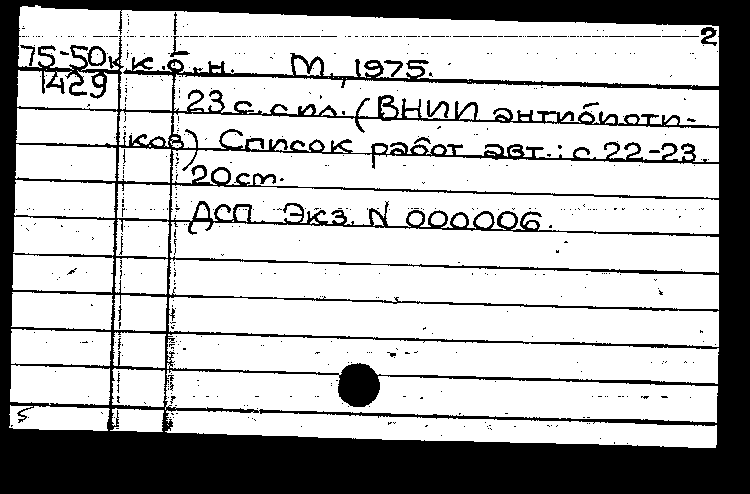 2
75-50к к.б.н. М., 1975.
1429
23 с. с ил. (ВНИИ антибиоти-
ков) Список работ авт.: с. 22-23.
20 ст.
ДСП. Экз. N 000006.